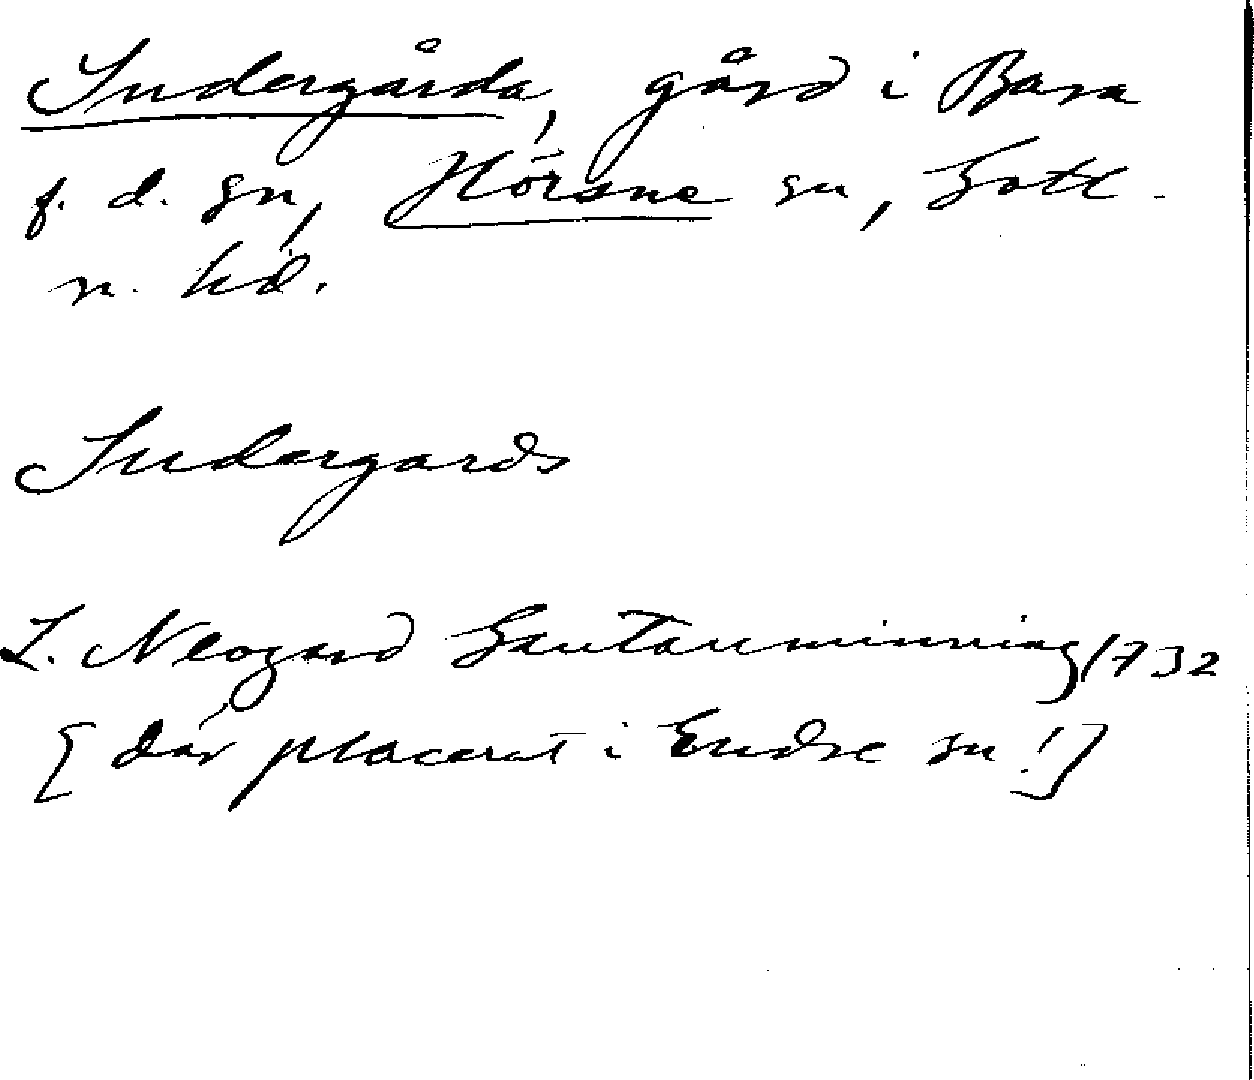 Indergårda, gård i Bara
f. d. sn, Hörsne sn, Gotl.
n. hd.
Indergards
L. Neogard Gautauminning 1732
[där placerat i Endre sn!]